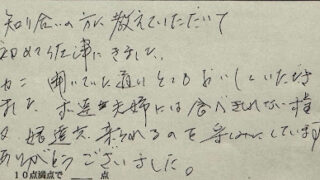 知り合いの方に教えていただいて
初めて佐津にきました。
カニ 聞いていた通りとてもおいしくいただき
ました。 夫婦には食べきれない
来られるのを楽しみにしています
ありがとうございました。
10点満点で 点